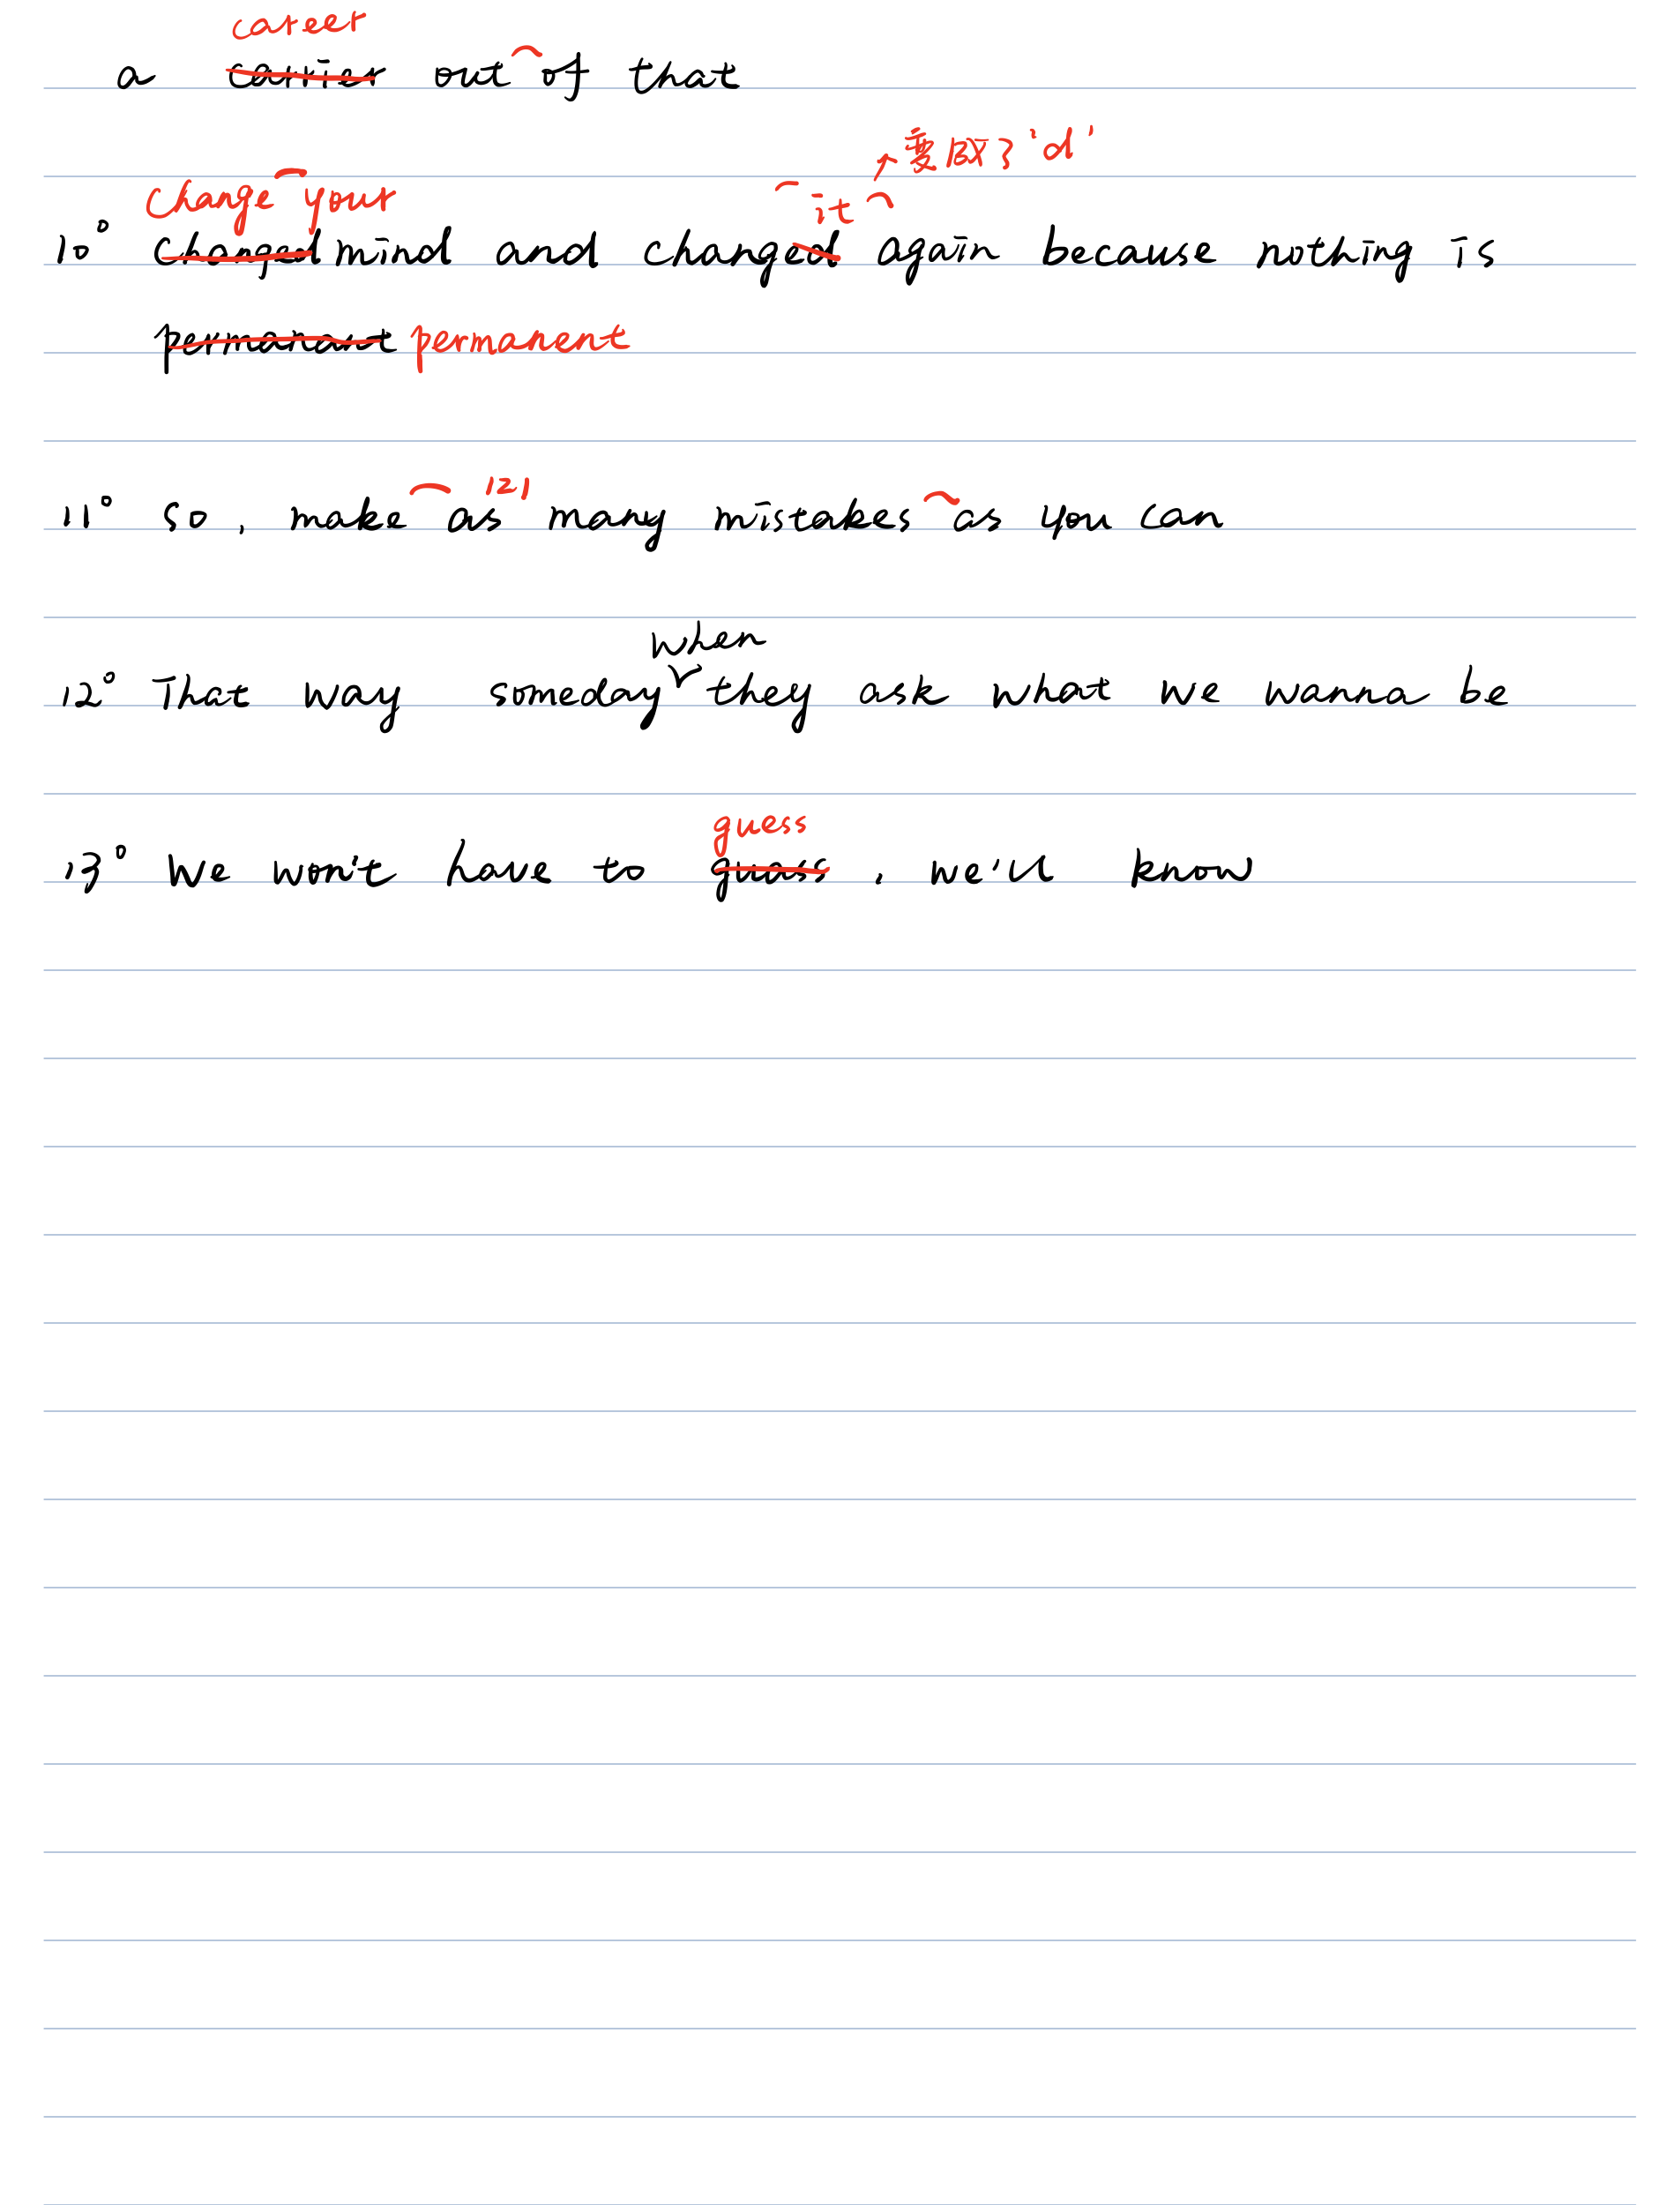 career
a carrier out of that
变成了 'd'
change your it
10° changed mind and changed again because nothing is
permanant permanent
/z/
11° so, make as many mistakes as you can
when
12° That way someday they ask what we wanna be
guess
13° We won't have to guass, we'll know